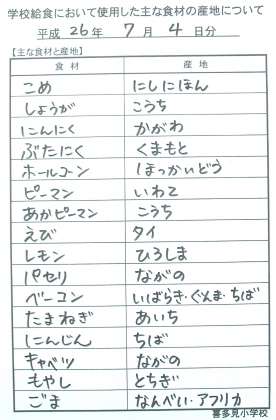 学校給食において使用した主な食材の産地について
平成 26 年 7 月 4 日分
【主な食材と産地】
食材 産地
こめ にしにほん
しょうが こうち
にんにく かがわ
ぶたにく くまもと
ホールコーン ほっかいどう
ピーマン いわて
あかピーマン こうち
えび タイ
レモン ひろしま
パセリ ながの
ベーコン いばらき・ぐんま・ちば
たまねぎ あいち
にんじん ちば
キャベツ ながの
もやし とちぎ
ごま なんべい・アフリカ
喜多見小学校